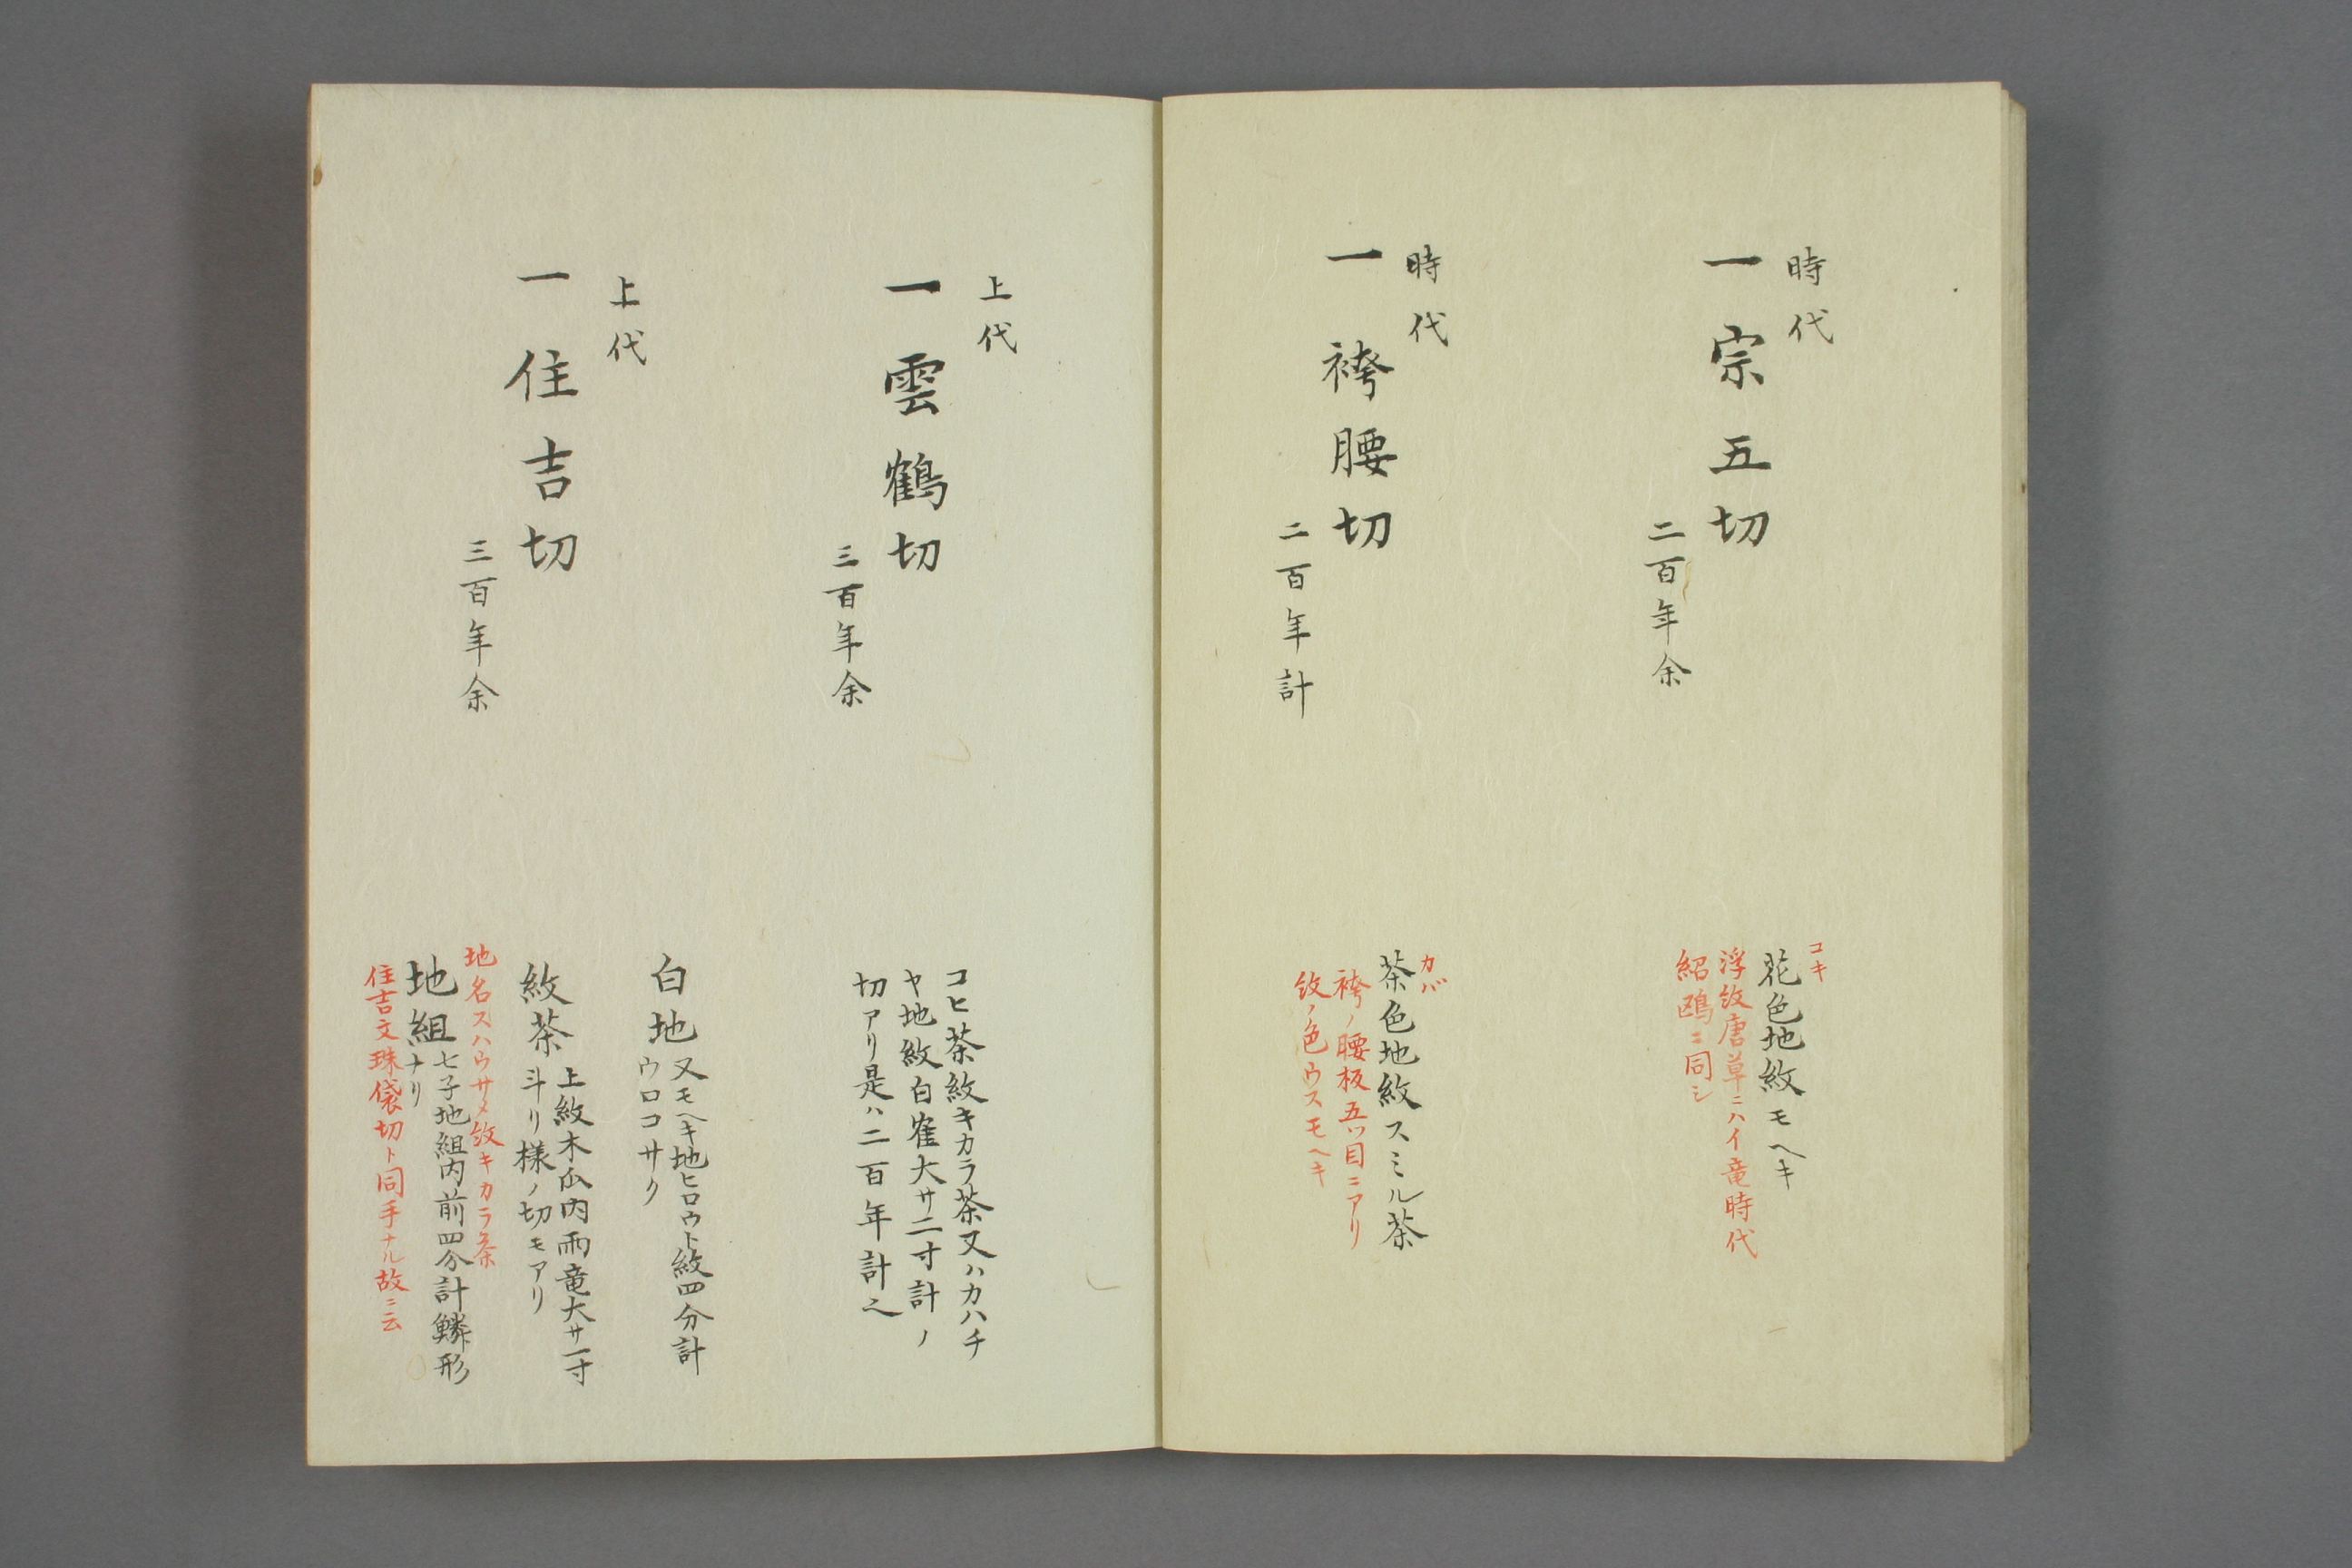 時代
一宗五切
二百年余
コキ
花色地紋モヘキ
浮紋唐草ニハイ竜時代
紹鴎ニ同シ
時代
一袴腰切
二百年計
カバ
茶色地紋スミル茶
袴ノ腰板五ツ目ニアリ
紋ノ色ウスモヘキ
上代
一雲鶴切
三百年余
コヒ茶紋キカラ茶又ハカハチ
ヤ地紋白寉大サ二寸計ノ
切アリ是ハ二百年計之
上代
一住吉切
三百年余
白地又モヘキ地ヒロウト紋四分計
ウロコサク
紋茶上紋木瓜内雨竜大サ一寸
斗リ様ノ切モアリ
地名スハウサメ紋キカラ茶
地組七子地組内前四分計鱗形
ナリ
住吉文珠袋切ト同手ナル故ニ云